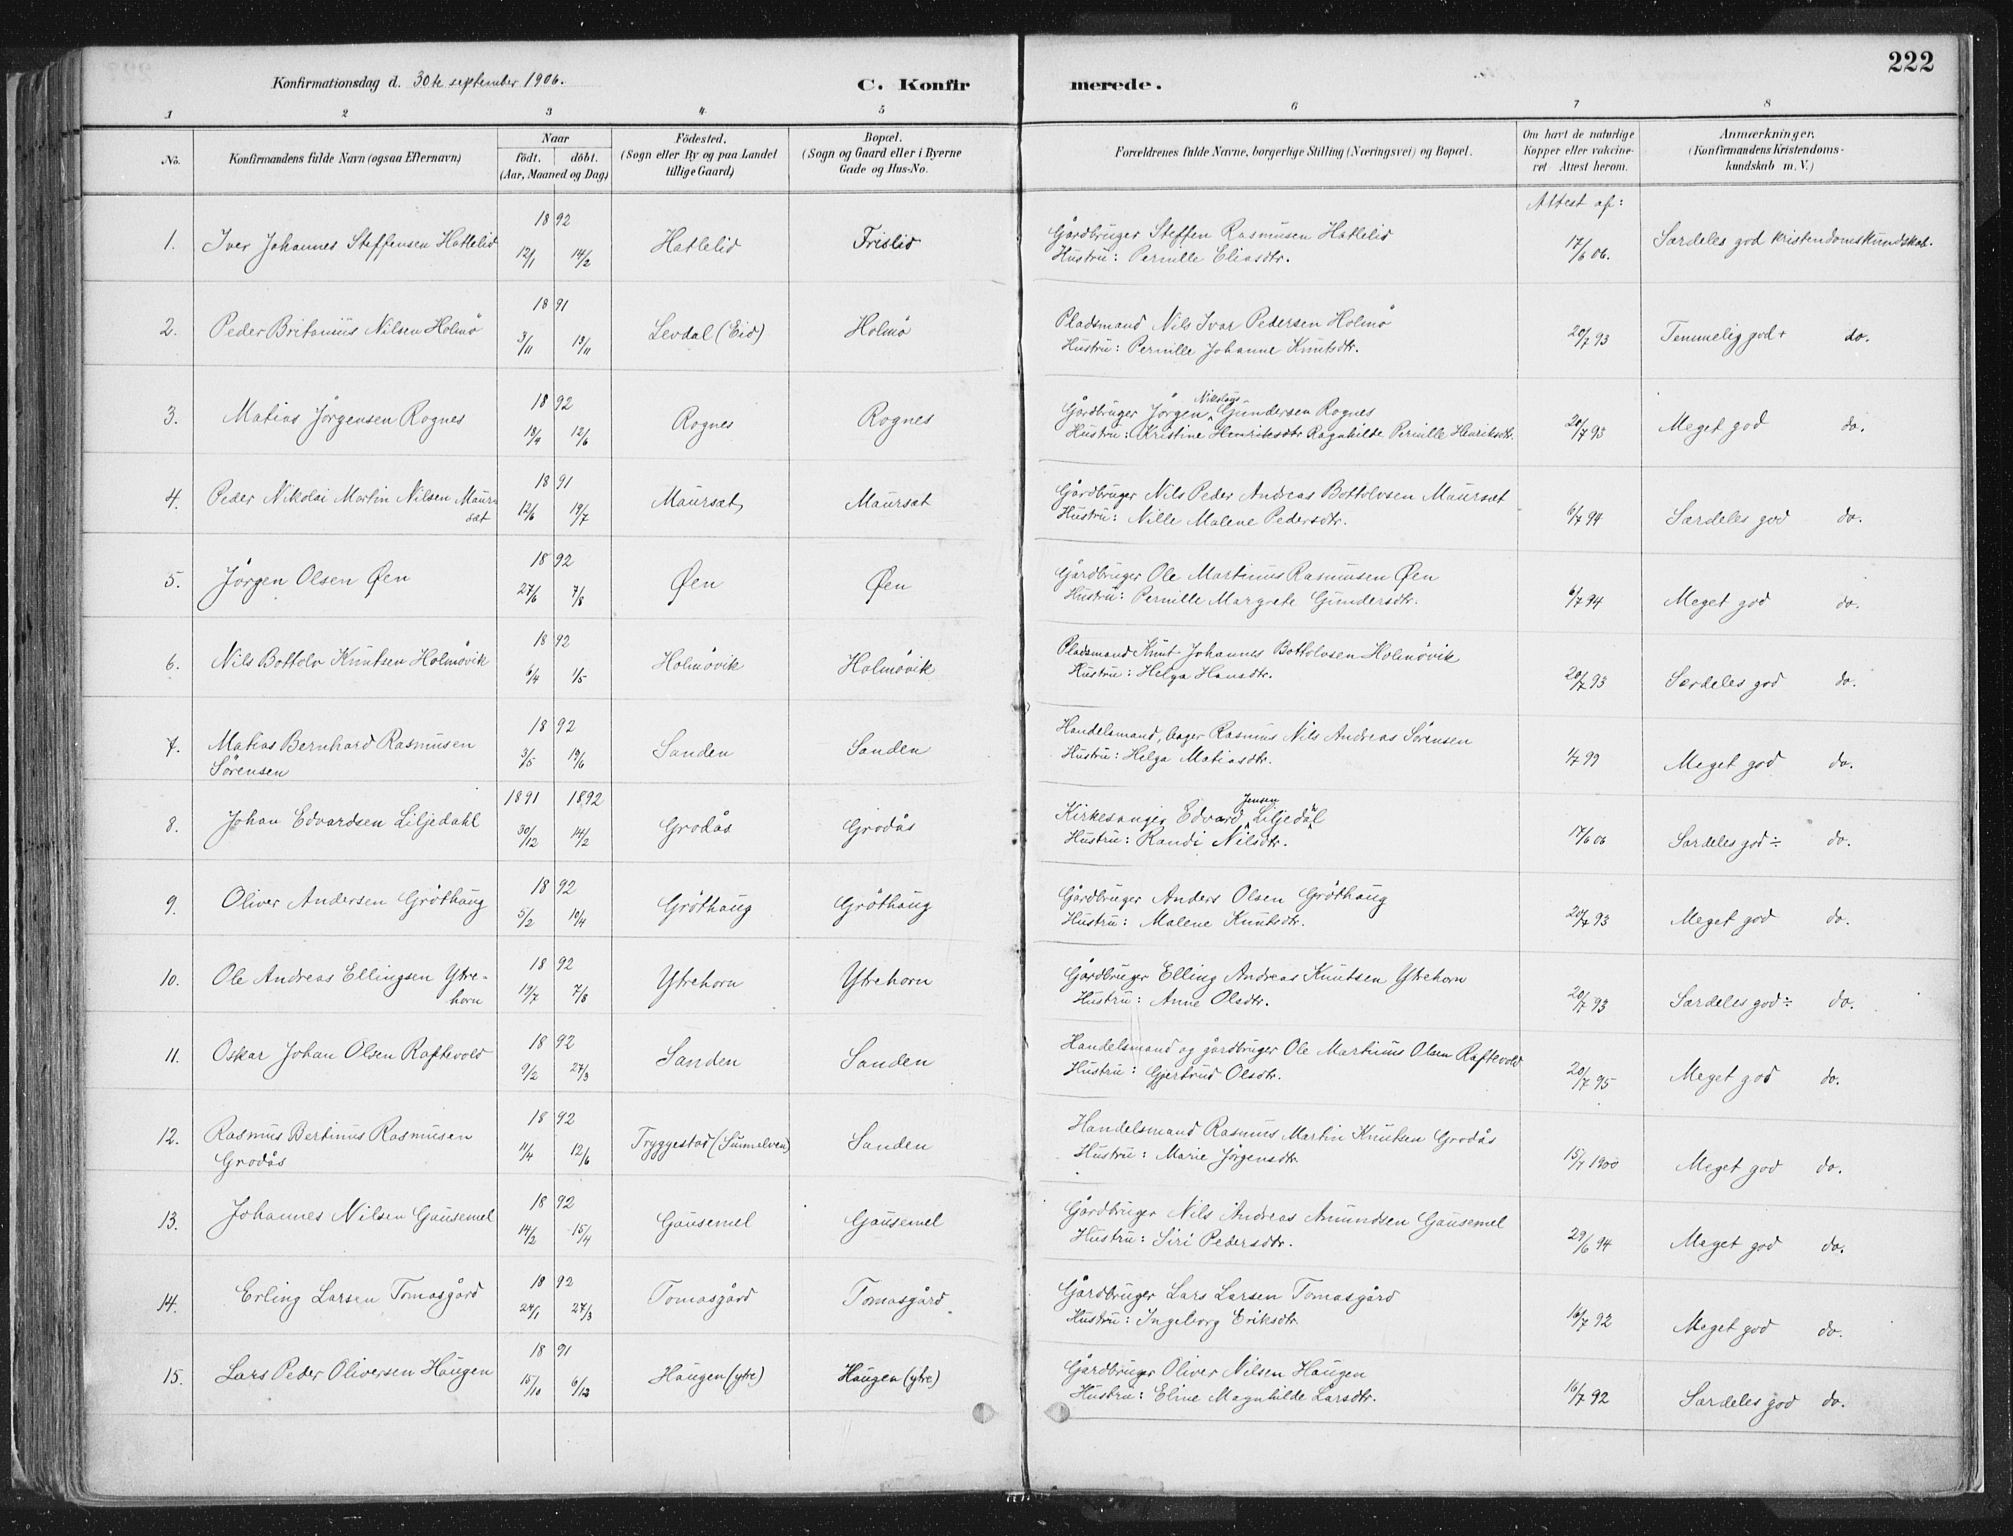 222
Konfirmationsdag d. 30te september 1906.
C. Konfirmerede.
1 2 3 4 5 6 7 8
No.
Konfirmandens fulde Navn (ogsaa Efternavn)
Naar
födt. döbt.
(Aar, Maaned og Dag)
Födested.
(Sogn eller By og paa Landet
tillige Gaard)
Bopæl.
(Sogn og Gaard eller i Byerne
Gade og Hus-No.
Forældrenes fulde Navne, borgerlige Stilling (Næringsvei) og Bopæl.
Om havt de naturlige
Kopper eller vakcine-
ret Attest herom.
Anmærkninger.
(Konfirmandens Kristendoms-
kundskab m. V.)
Attest af:
1. Iver Johannes Steffensen Hatlelid 1892 12/1 14/2 Hatlelid Frislid Gårdbruger Steffen Rasmusen Hatlelid 17/6 06. Særdeles god kristendomskundskab.
Hustru: Pernille Eliasdtr.
2. Peder Britanius Nilsen Holmö 1891 3/11 13/11 Levdal (Eid) Holmö Pladsmand Nils Ivar Pedersen Holmö 20/7 93 Temmelig god+ do.
Hustru: Pernille Johanne Knutsdtr.
3. Matias Jörgensen Rognes 1892 18/4 12/6 Rognes Rognes Gårdbruger Jörgen Nikolays Gundersen Rognes 20/7 93 Meget god do.
Hustru: Kristine Henriksdtr Ragnhilde Pernille Henriksdtr.
4. Peder Nikolai Martin Nilsen Maur-
sæt 1891 12/6 19/7 Maursæt Maursæt Gårdbruger Nils Peder Andreas Bottolvsen Maursæt 6/7 94 Særdeles god do.
Hustru: Nille Malene Pedersdtr.
5. Jörgen Olsen Øen 1892 27/6 7/8 Øen Øen Gårdbruger Ole Martinus Rasmusen Øen 6/7 94 Meget god do.
Hustru: Pernille Margrete Gundersdtr.
6. Nils Bottolv Knutsen Holmövik 1892 6/4 1/5 Holmövik Holmövik Pladsmand Knut Johannes Bottolvsen Holmövik 20/7 93 Særdeles god do.
Hustru: Helga Hansdtr.
7. Matias Bernhard Rasmusen
Sörensen 1892 3/5 19/6 Sanden Sanden Handelsmand, bager Rasmus Nils Andreas Sörensen 1/7 99 Meget god do.
Hustru: Helga Matiasdtr.
8. Johan Edvardsen Liljedahl 1891 1892 30/12 14/2 Grodås Grodås Kirkesanger Edvard Jensen Liljedahl 17/6 06 Særdeles god÷ do.
Hustru: Randi Nilsdtr.
9. Oliver Andersen Gröthaug 1892 5/2 10/4 Gröthaug Gröthaug Gårdbruger Anders Olsen Gröthaug 20/7 93 Meget god do.
Hustru: Malene Knutsdtr.
10. Ole Andreas Ellingsen Ytre-
horn 1892 19/7 7/8 Ytrehorn Ytrehorn Gårdbruger Elling Andreas Knutsen Ytrehorn 20/7 93 Særdeles god÷ do.
Hustru: Anne Olsdtr.
11. Oskar Johan Olsen Raftevold 1892 9/2 27/3 Sanden Sanden Handelsmand og gårdbruger Ole Martinus Olsen Raftevold 20/7 95 Meget god do.
Hustru: Gjertrud Olsdtr.
12. Rasmus Bertinus Rasmusen
Grodås 1892 11/4 12/6 Tryggestad (Sunnelven) Sanden Handelsmand Rasmus Martin Knutsen Grodås 15/7 1900 Meget god do.
Hustru: Marie Jörgensdtr.
13. Johannes Nilsen Gausemel 1892 14/2 15/4 Gausemel Gausemel Gårdbruger Nils Andreas Amundsen Gausemel 29/6 94 Meget god do.
Hustru: Siri Pedersdtr.
14. Erling Larsen Tomasgård 1892 24/1 27/3 Tomasgård Tomasgård. Gårdbruger Lars Larsen Tomasgård 16/7 92 Meget god do.
Hustru: Ingeborg Eriksdtr.
15. Lars Peder Oliversen Haugen 1891 15/10 6/12 Haugen (ytre) Haugen (ytre) Gårdbruger Oliver Nilsen Haugen 16/7 92 Særdeles god do.
Hustru: Eline Magnhilde Larsdtr.